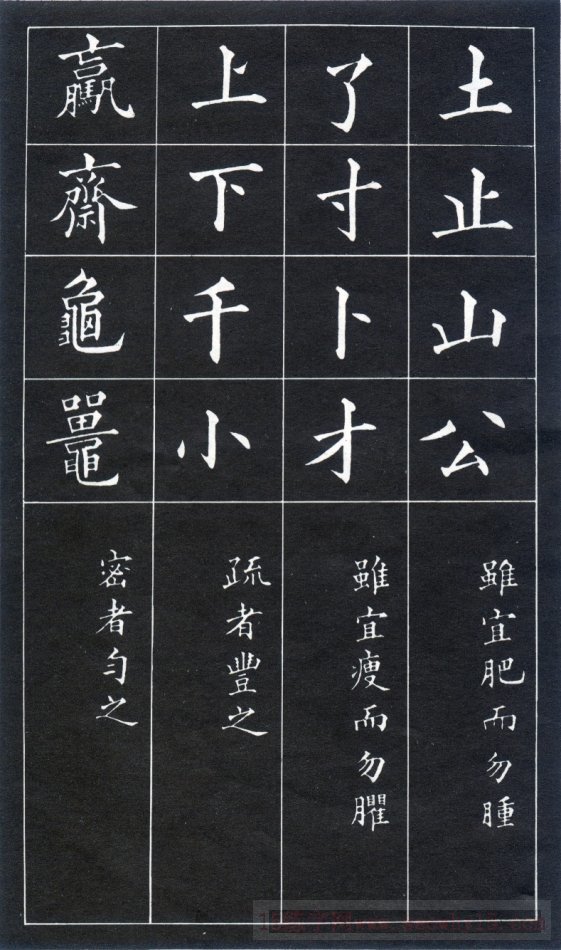 土止山公
雖宜肥而勿腫
了寸卜才
雖宜瘦而勿臞
上下千小
疏者豐之
驘齋龜鼉
密者勻之